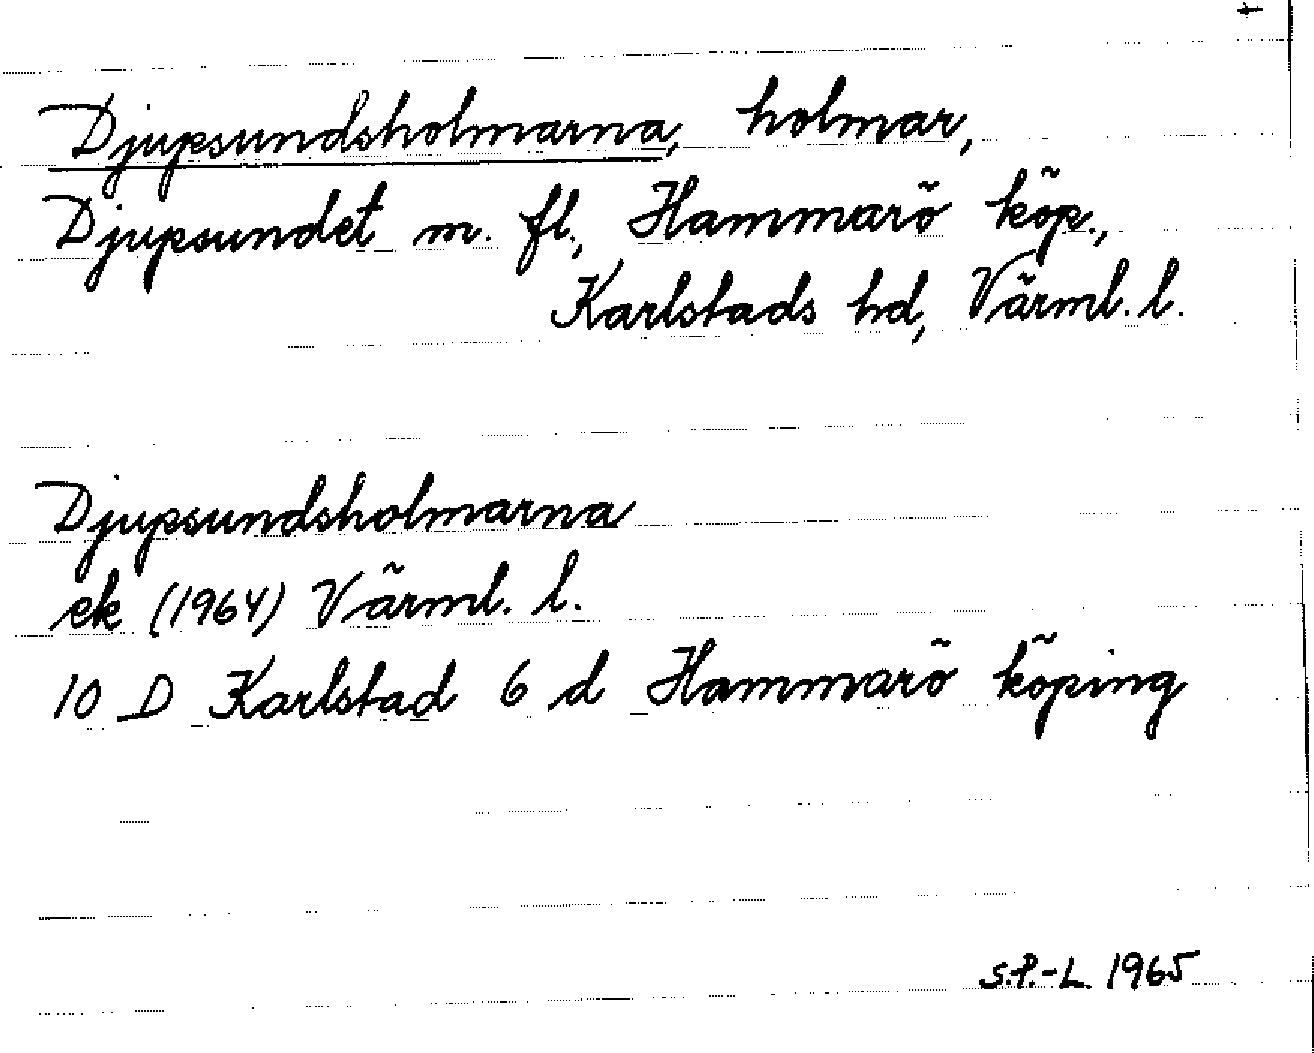 Djupsundsholmarna, holmar,
Djupsundet m. fl., Hammarö köp.,
Karlstads hd, Värml. l.
Djupsundsholmarna
ek (1964) Värml. l.
10 D Karlstad 6 d Hammarö köping
S.P.-L. 1965